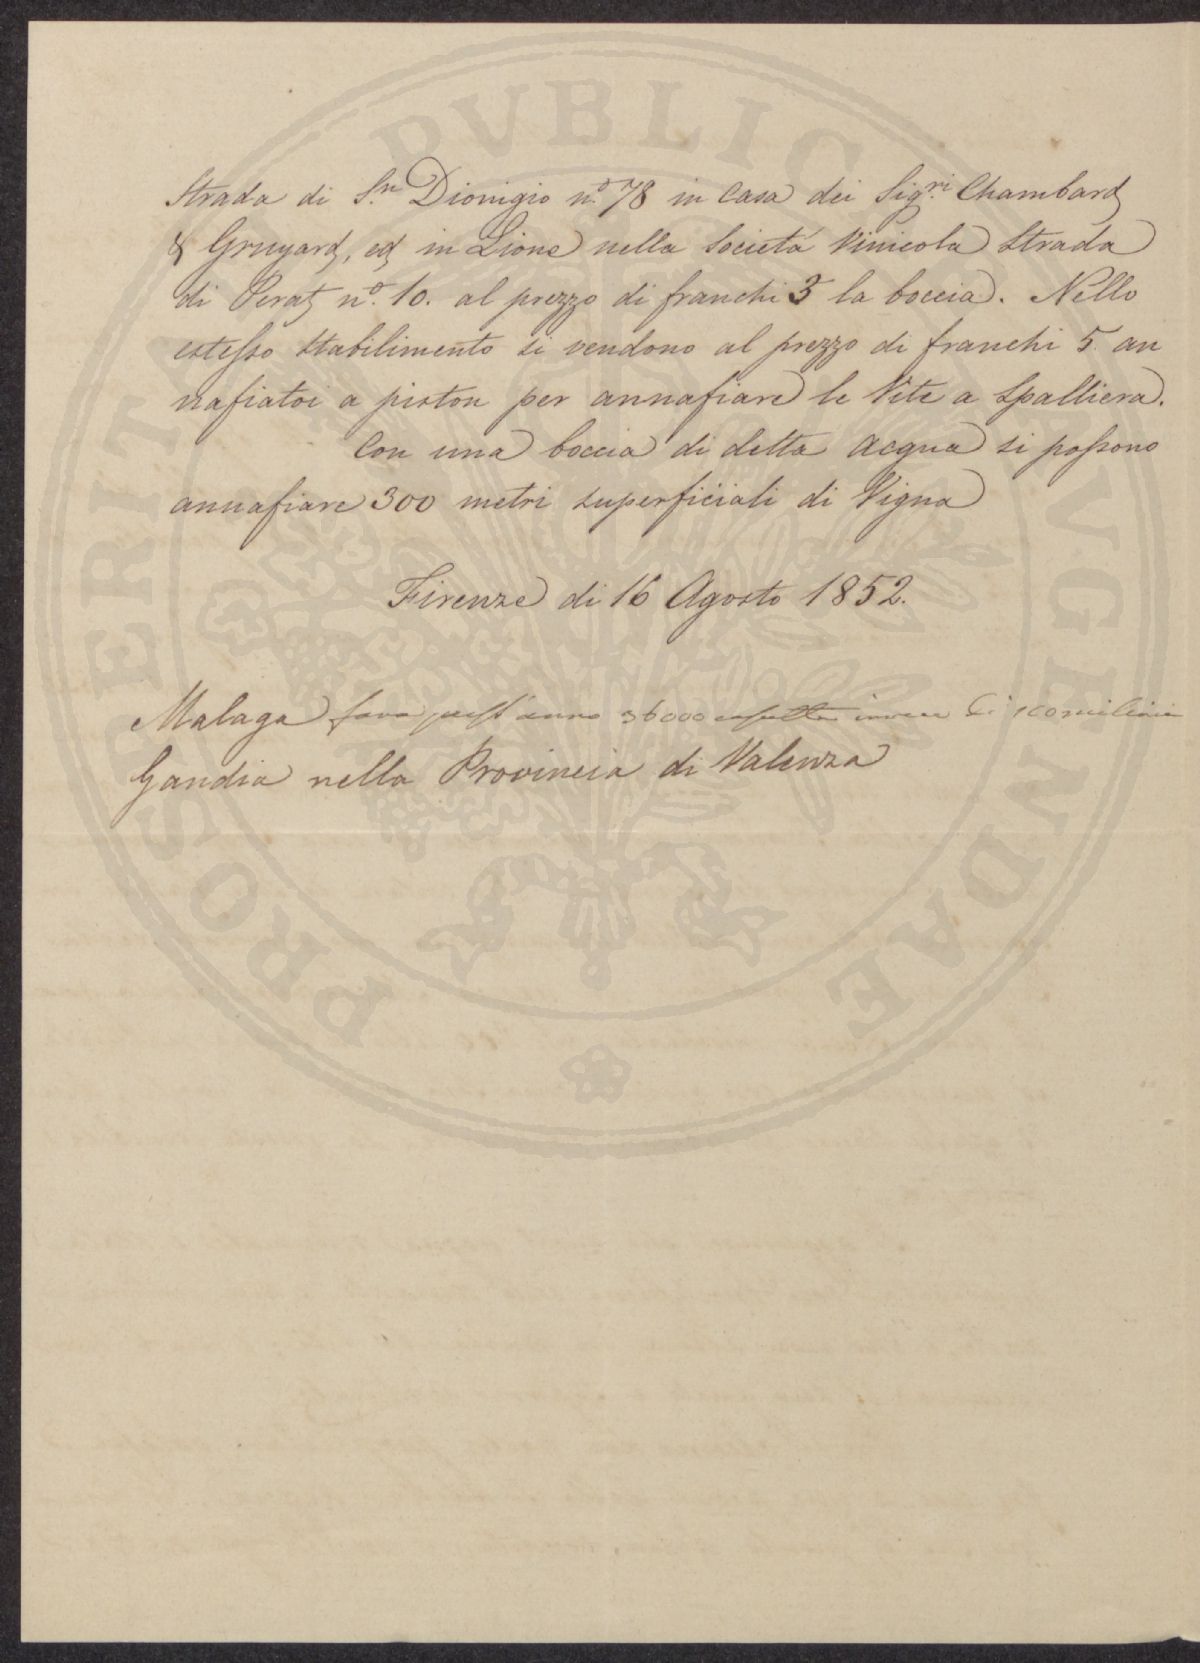 Strada di S.n Dionigio n.o 78 in casa dei Sig.ri Chambard
& Gruyard, ed in Lione nella Società Vinicola Strada
di Perat n.o 10. al prezzo di franchi 3 la boccia. Nello
istesso stabilimento si vendono al prezzo di franchi 5 an
nafiatoi a piston per annafiare le Vite a Spalliera.
Con una boccia di detta acqua si possono
annafiare 300 metri superficiali di Vigna
Firenze di 16 Agosto 1852.
Malaga fara quest'anno 36000 invece di
Gandia nella Provincia di Valenza
PROSPERITATI PVBLICAE AVGENDAE